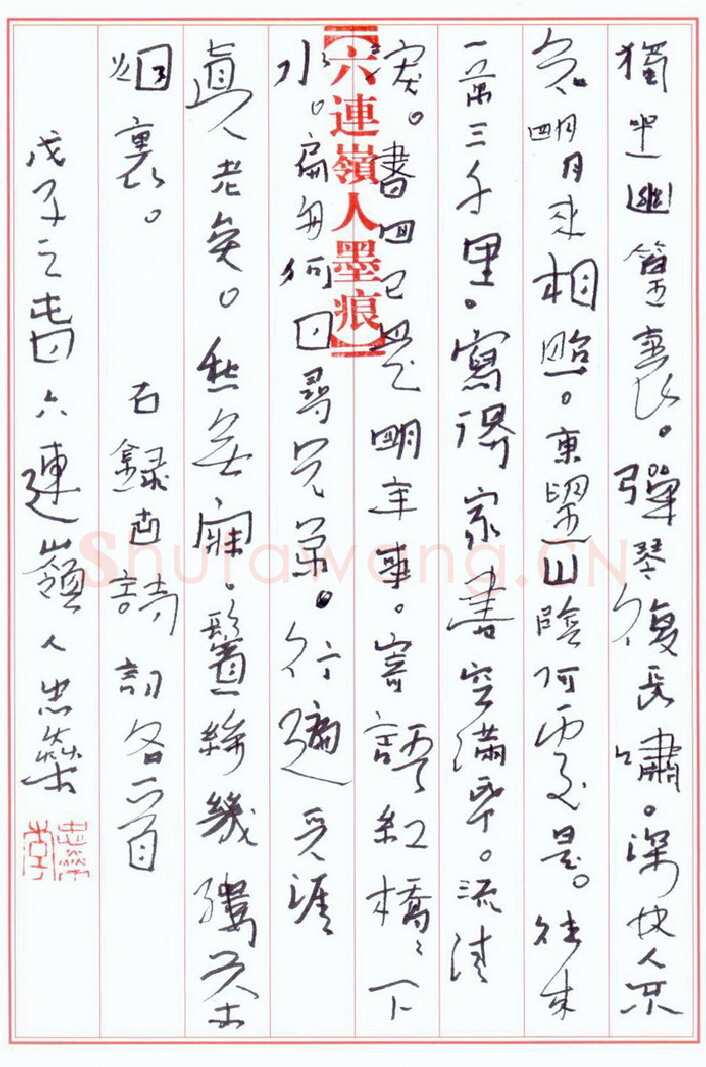 獨坐幽篁裏。彈琴復長嘯。深林人不
知。明月來相照。東望山陰何處是。往來
一萬三千里。寫得家書空滿紙。流清
淚。書回已是明年事。寄語紅橋〻下
水。扁舟何日尋兄弟。行遍天涯
真老矣。愁無寐。鬢絲幾縷茶
烟裏。 右錄古詩詞各一首
戊子之春日六連嶺人忠燊
忠燊
李
【六連嶺人墨痕】
Shufawang.CN